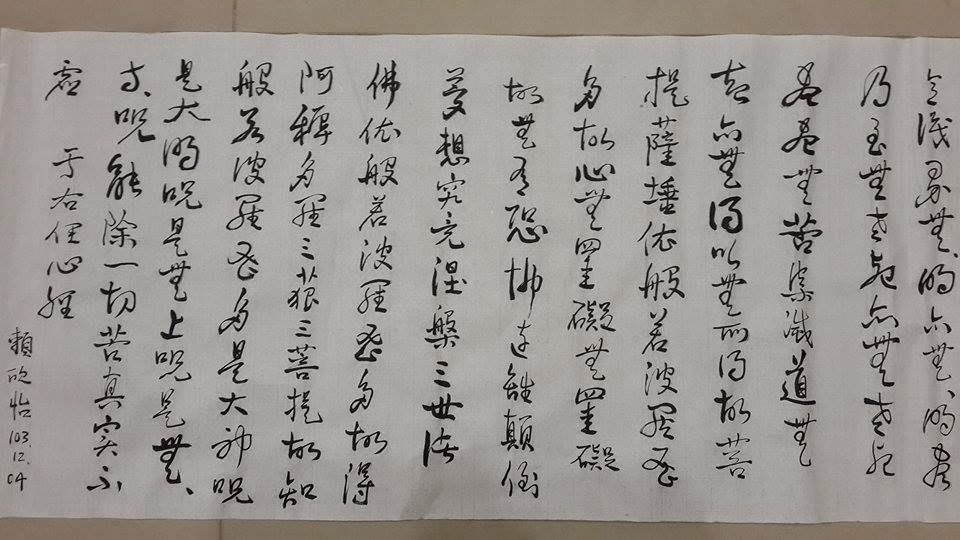 意識界無、明亦無、明盡
乃至無老死亦無老死
盡盡無苦集滅道無
智亦無得以無所得故菩
提薩埵依般若波羅蜜
多故心無罣礙無罣礙
故無有恐怖遠離顛倒
夢想究竟涅槃三世諸
佛依般若波羅蜜多故得
阿耨多羅三藐三菩提故知
般若波羅蜜多是大神呪
是大明呪是無上呪是無、
等、呪能除一切苦真實不
虛 于右任心經
賴欣怡 103.12.04